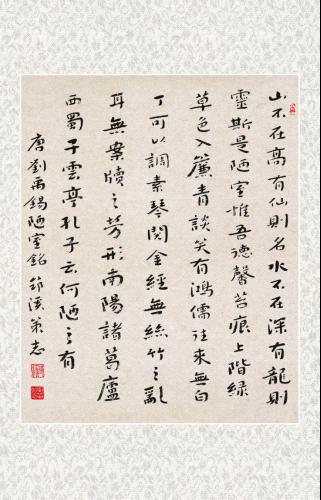 山不在高有仙則名水不在深有龍則
靈斯是陋室惟吾德馨苔痕上階緑
草色入簾青談笑有鴻儒往來無白
丁可以調素琴閲金經無絲竹之亂
耳無案牘之劳形南陽諸葛廬
西蜀子雲亭孔子云何陋之有
唐劉禹錫陋室銘 溪 志